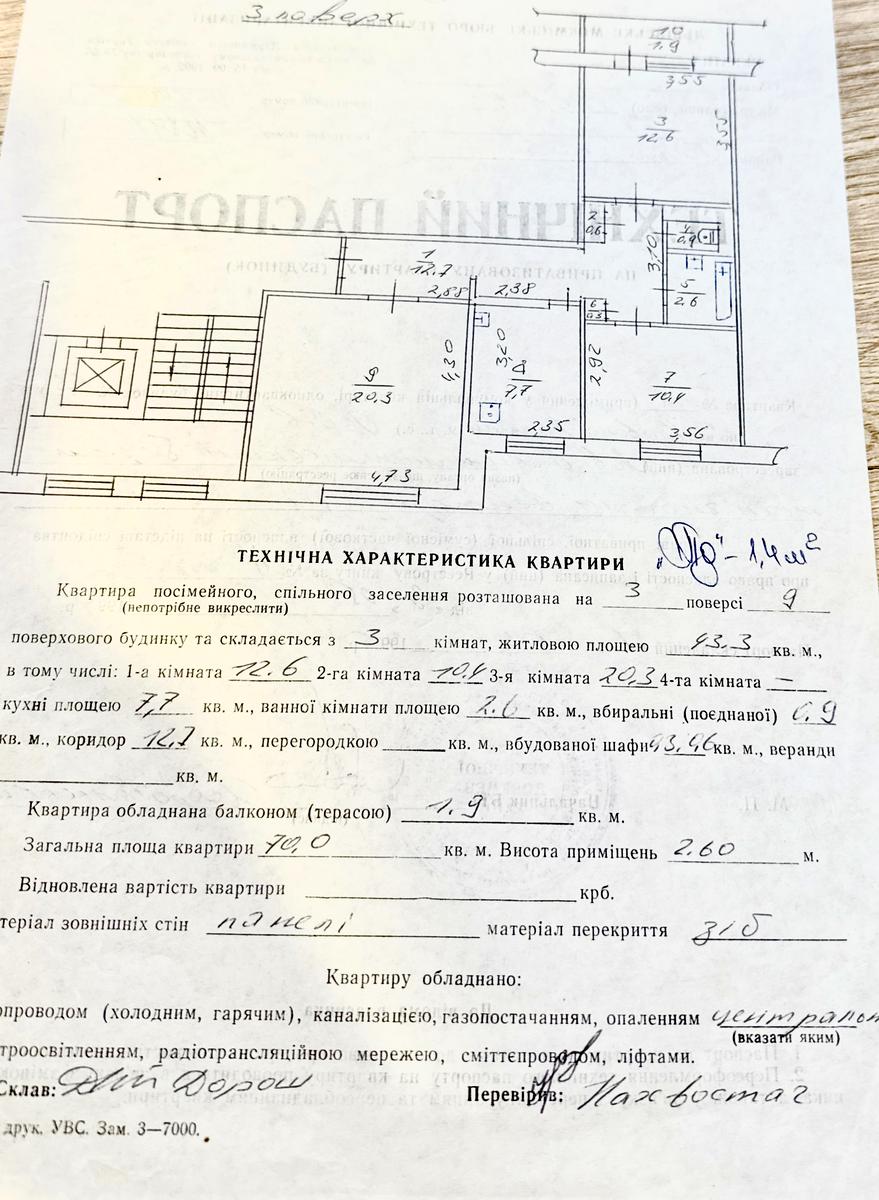 3 поверх
10
1.9
3,55
3
12.6
3,55
2
0,6
4
0,9
3,10
5
2.6
1
12.7
2,88
2,38
6
4,30
3,20
8
7,7
2,92
9
20,3
7
10,4
2,35
3,56
4,73
ТЕХНІЧНА ХАРАКТЕРИСТИКА КВАРТИРИ
- 1,4 м²
Квартира посімейного, спільного заселення розташована на 3 поверсі 9
(непотрібне викреслити)
поверхового будинку та складається з 3 кімнат, житловою площею 43.3 кв. м.,
в тому числі: 1-а кімната 12.6 2-га кімната 10.4 3-я кімната 20,3 4-та кімната —
кухні площею 7,7 кв. м., ванної кімнати площею 2.6 кв. м., вбиральні (поєднаної) 0.9
кв. м., коридор 12,7 кв. м., перегородкою кв. м., вбудованої шафи кв. м., веранди
кв. м.
Квартира обладнана балконом (терасою) 1.9 кв. м.
Загальна площа квартири 70,0 кв. м. Висота приміщень 2.60 м.
Відновлена вартість квартири крб.
теріал зовнішніх стін панелі матеріал перекриття з/б
Квартиру обладнано:
опроводом (холодним, гарячим), каналізацією, газопостачанням, опаленням централ
(вказати яким)
троосвітленням, радіотрансляційною мережею, сміттєпроводом, ліфтами.
Склав: Дорош Перевірив:
друк. УВС. Зам. 3—7000.
ТЕХНІЧНИЙ ПАСПОРТ
НА ПРИВАТИЗОВАНУ КВАРТИРУ (БУДИНОК)